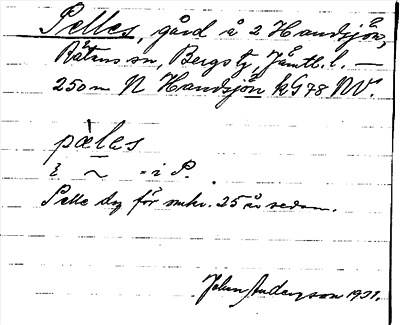 Pelles, gård å 2 Handsjön,
Rätans sn, Bergs tg, Jämtl. l. —
250 m N Handsjön kG 78 NV.
pæ̀les
i ~ = i P.
Pelle dog för omkr. 25 år sedan.
Johan Anderson 1931.